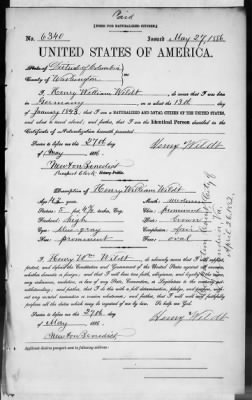 Paid
[FORM FOR NATURALIZED CITIZEN.]
No. 6340 Issued May 27, 1886
UNITED STATES OF AMERICA.
State of District of Columbia
County of Washington
I, Henry William Wildt, do swear that I was born in
Germany on or about the 13th day of
January 1843; that I am a NATURALIZED AND LOYAL CITIZEN OF THE UNITED STATES,
and about to travel abroad; and further, that I am the Identical Person described in the
Certificate of Naturalization herewith presented.
Sworn to before me this 27th day of
May 1886.
Henry Wildt
Newton Benedict
Passport Clerk
Notary Public.
Description of Henry William Wildt
Age: 43 years
Stature: 5 feet inches, Eng.
Forehead: high
Eyes: blue gray
Nose: prominent
Mouth: medium
Chin: prominent
Hair: brown
Complexion: fair
Face: oval
I, Henry Wm Wildt, do solemnly swear that I will support,
protect, and defend the Constitution and Government of the United States against all enemies,
whether domestic or foreign; and that I will bear true faith, allegiance, and loyalty to the same,
any ordinance, resolution, or law of any State, Convention, or Legislature to the contrary
notwithstanding; and further, that I do this with a full determination, pledge, and purpose, without
any mental reservation or evasion whatsoever; and further, that I will well and faithfully
perform all the duties which may be required of me by law. So help me God.
Sworn to before me this 27th
day of
May 1886.
Henry Wildt
Newton Benedict
Applicant desires passport sent to following address: